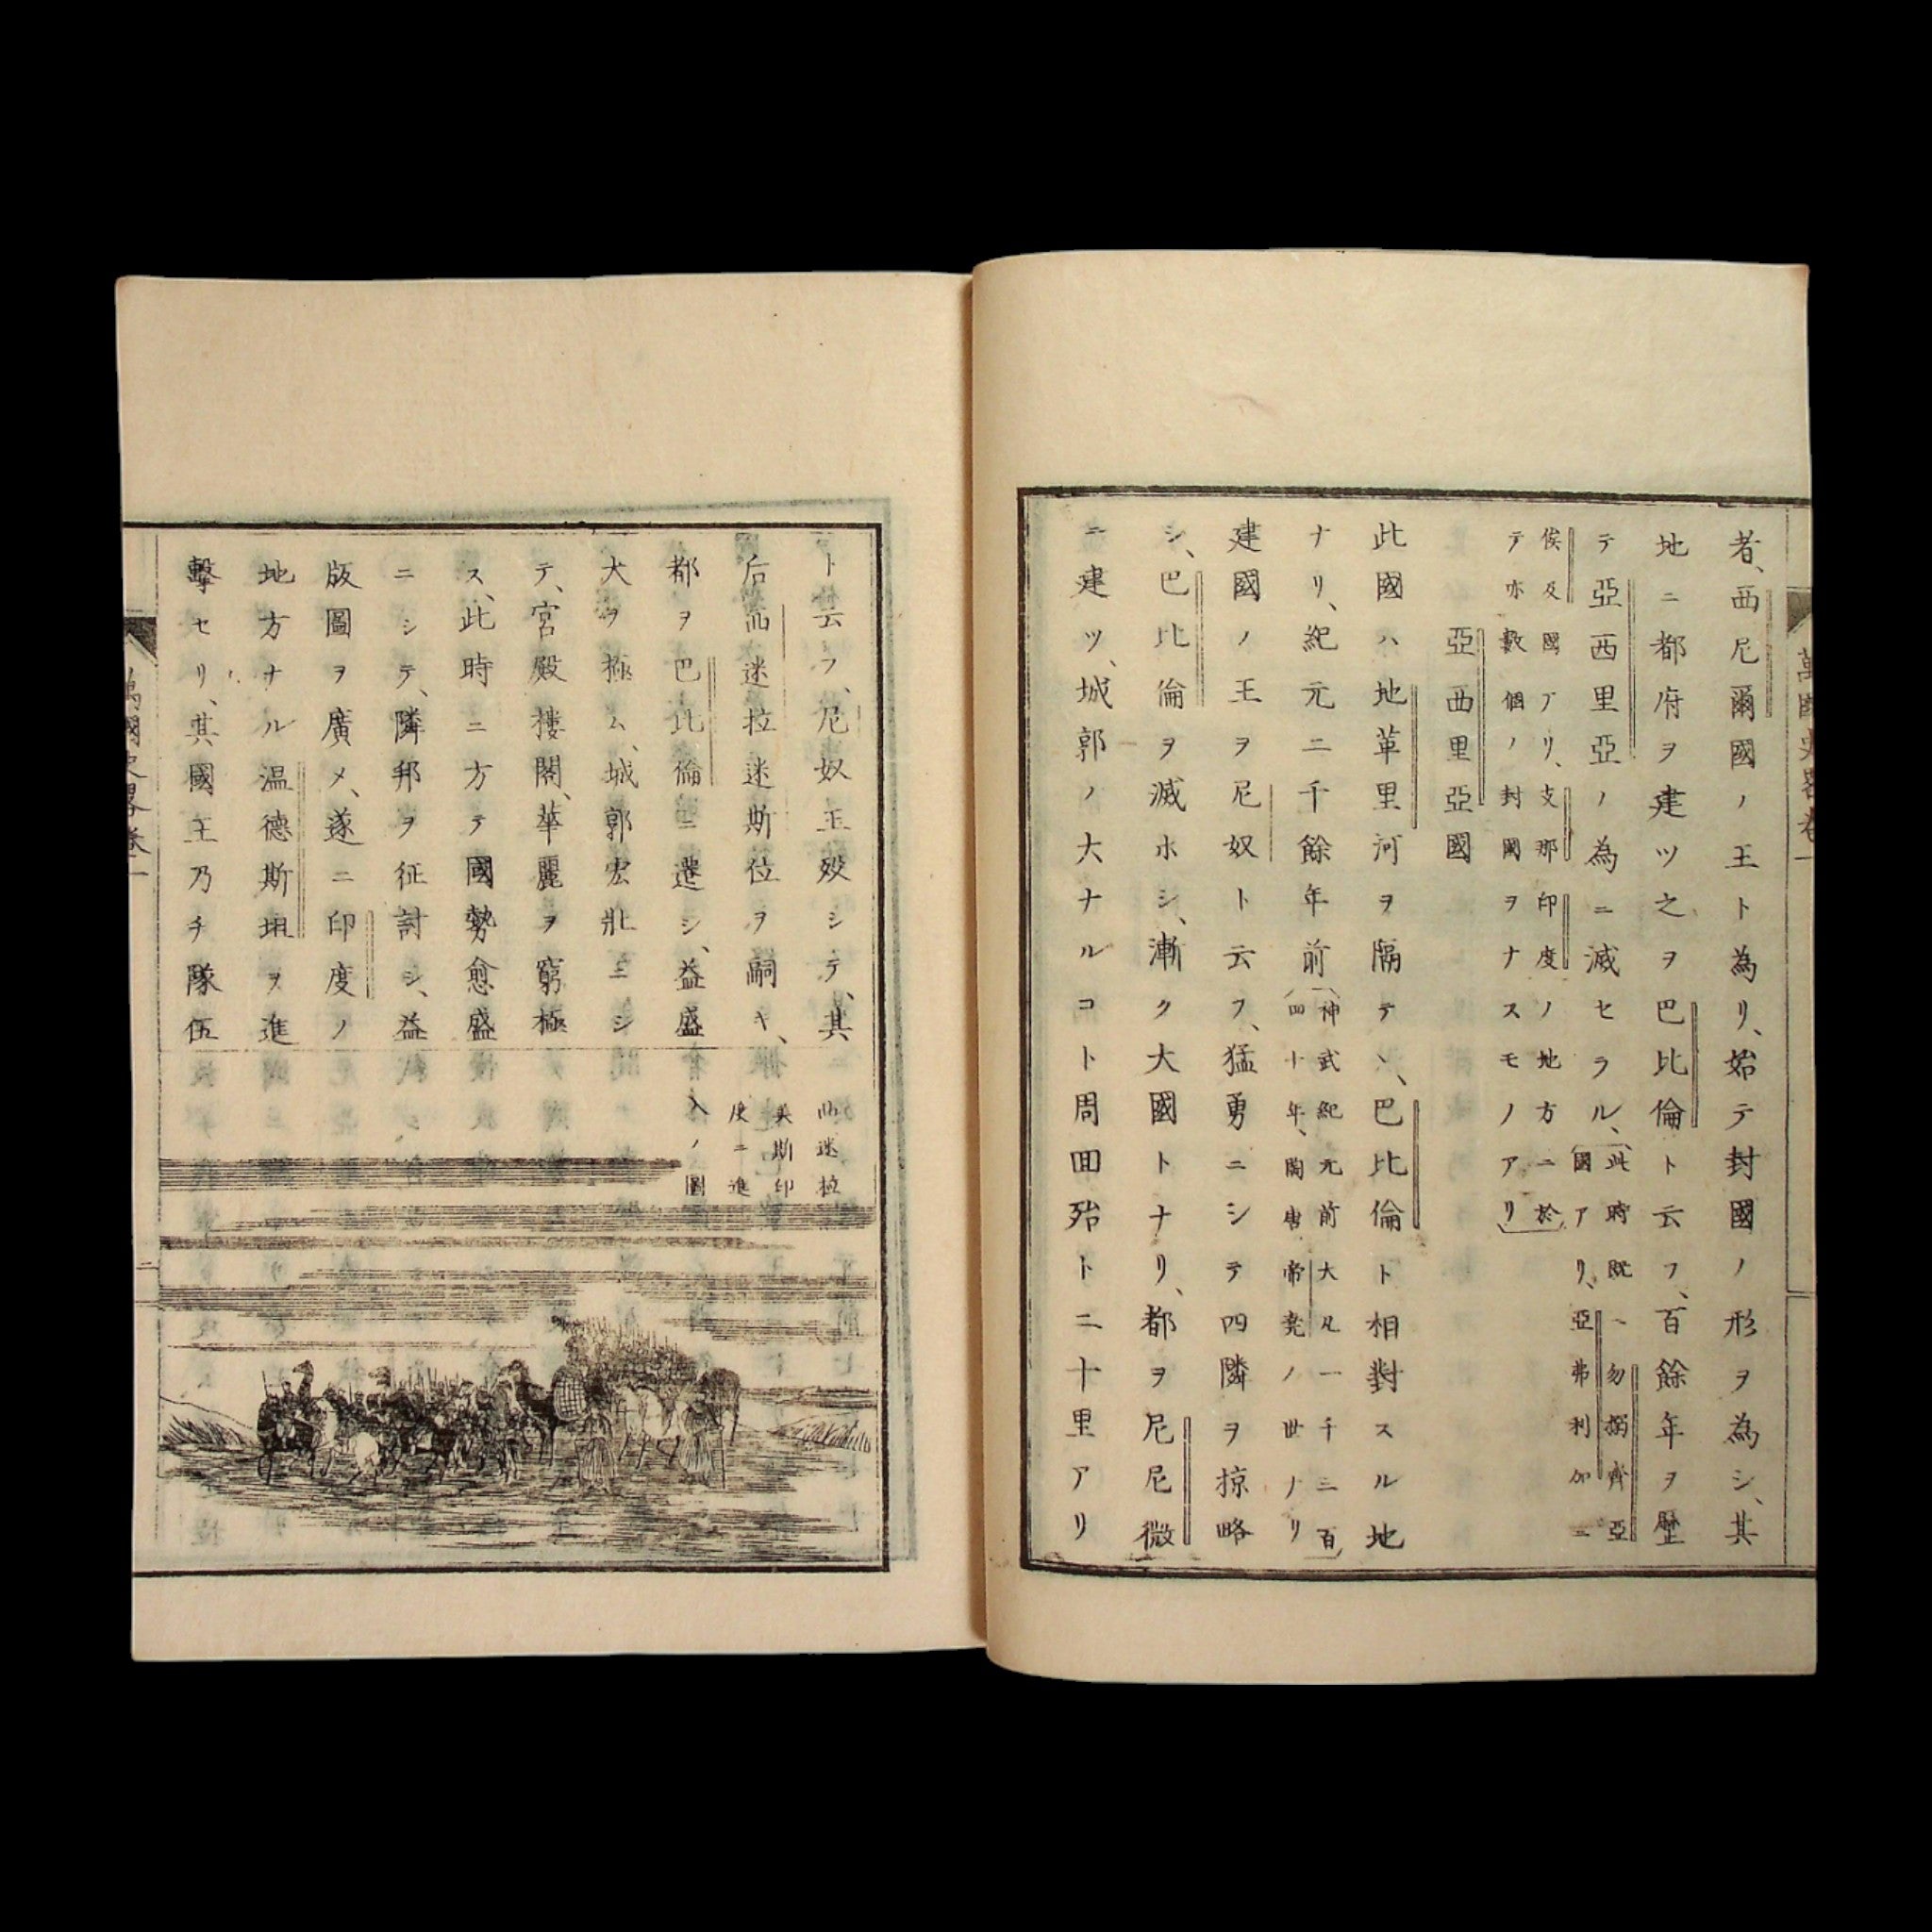 者、西尼爾國ノ王ト為リ、始テ封國ノ形ヲ為シ、其
地ニ都府ヲ建ツ之ヲ巴比倫ト云フ、百餘年ヲ歴
テ亞西里亞ノ為ニ滅セラル、
此時既ニ勿搦齊亞
國アリ、亞弗利加ニ
侯及國アリ、支那印度ノ地方ニ於
テ亦數個ノ封國ヲナスモノアリ
亞西里亞國
此國ハ地革里河ヲ隔テヽ、巴比倫ト相對スル地
ナリ、紀元二千餘年前
神武紀元前大凡一千三百
四十年、陶唐帝堯ノ世ナリ
建國ノ王ヲ尼奴ト云フ、猛勇ニシテ四隣ヲ掠略
シ、巴比倫ヲ滅ホシ、漸ク大國トナリ、都ヲ尼尼微
ニ建ツ、城郭ノ大ナルコト周回殆ト二十里アリ
萬國史畧卷一
ト云フ、尼奴王歿シテ、其
后西迷拉迷斯位ヲ嗣キ、
都ヲ巴比倫ニ遷シ、益盛
大ヲ極ム、城郭宏壯ニシ
テ、宮殿樓閣、華麗ヲ窮極
ス、此時ニ方テ國勢愈盛
ニシテ、隣邦ヲ征討シ、益
版圖ヲ廣メ、遂ニ印度ノ
地方ナル温德斯坦ヲ進
擊セリ、其國王乃チ隊伍
西迷拉
美斯印
度ニ進
入ノ圖
萬國史畧卷一
二